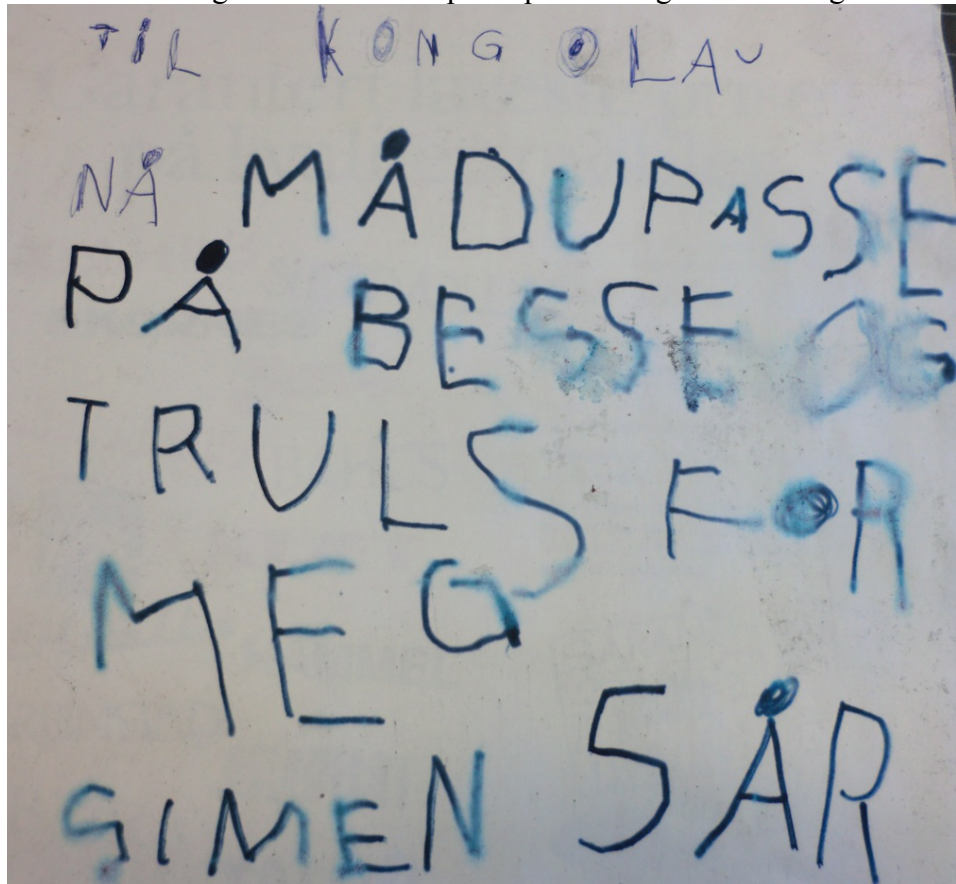 TIL KONG OLAV
NÅ MÅDUPASSE
PÅ BESSE OG
TRULS FOR
MEG
SIMEN 5 ÅR